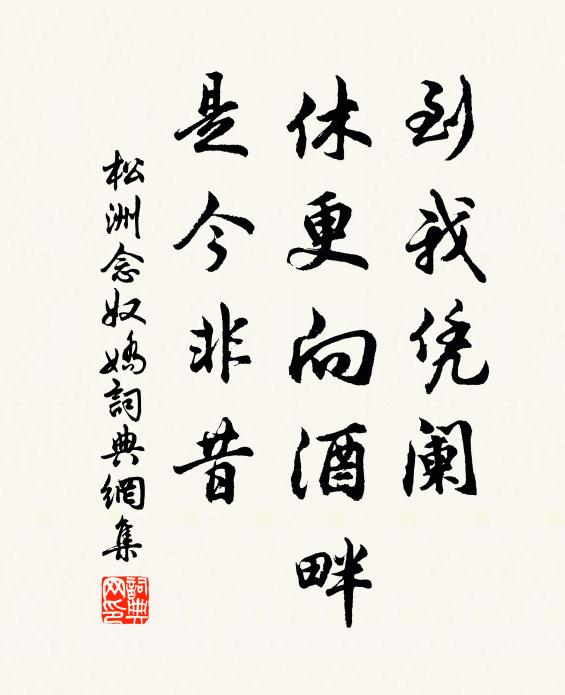 到我凭阑
休更向酒畔
是今非昔
松洲念奴娇詞典網集
詞典网印